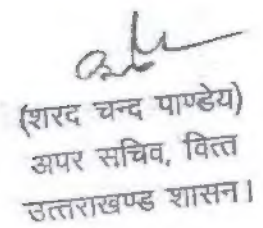 (शरद चन्द पाण्डेय)
अपर सचिव, वित्त
उत्तराखण्ड शासन।